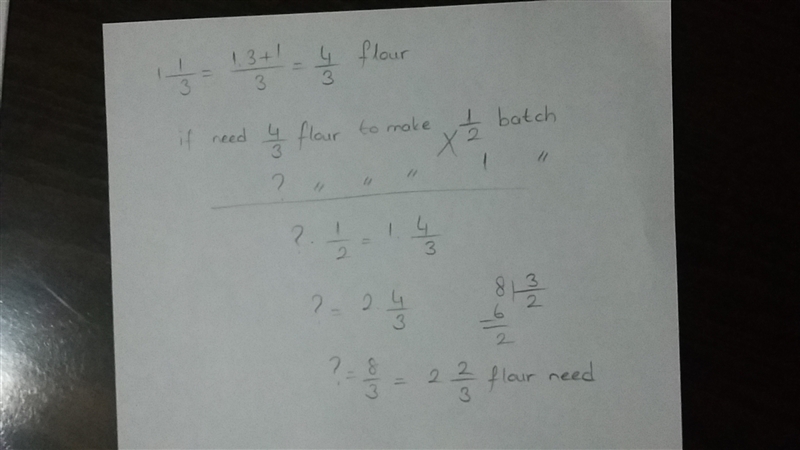 1 1/3 = 1.3+1/3 = 4/3 flour
if need 4/3 flour to make 1/2 batch
? " " " 1 "
? . 1/2 = 1 . 4/3
? = 2 . 4/3
8 | 3
6 2
2
? = 8/3 = 2 2/3 flour need